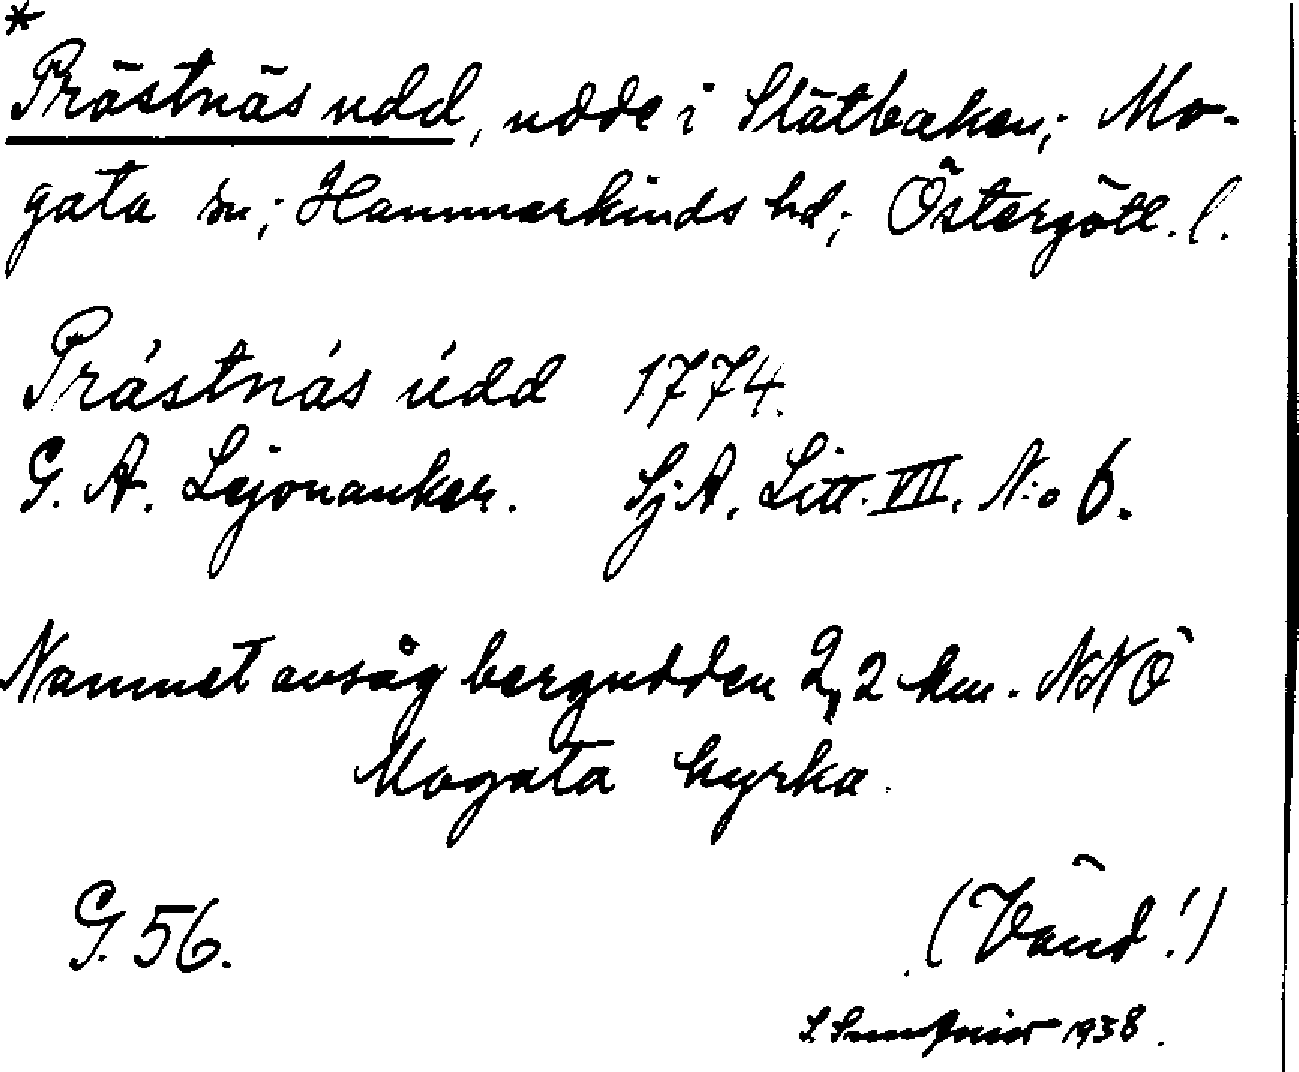 *
Prästnäs udd, udde i Slätbaken; Mo-
gata sn; Hammarkinds hd; Östergötl. l.
Prástnás údd 1774.
G. A. Lejonanker. Sj. A. Litt. VII. N:o 6.
Namnet avsåg bergudden 2,2 km. NNÖ
Mogata kyrka.
G. 56.
(Vänd!)
1938.